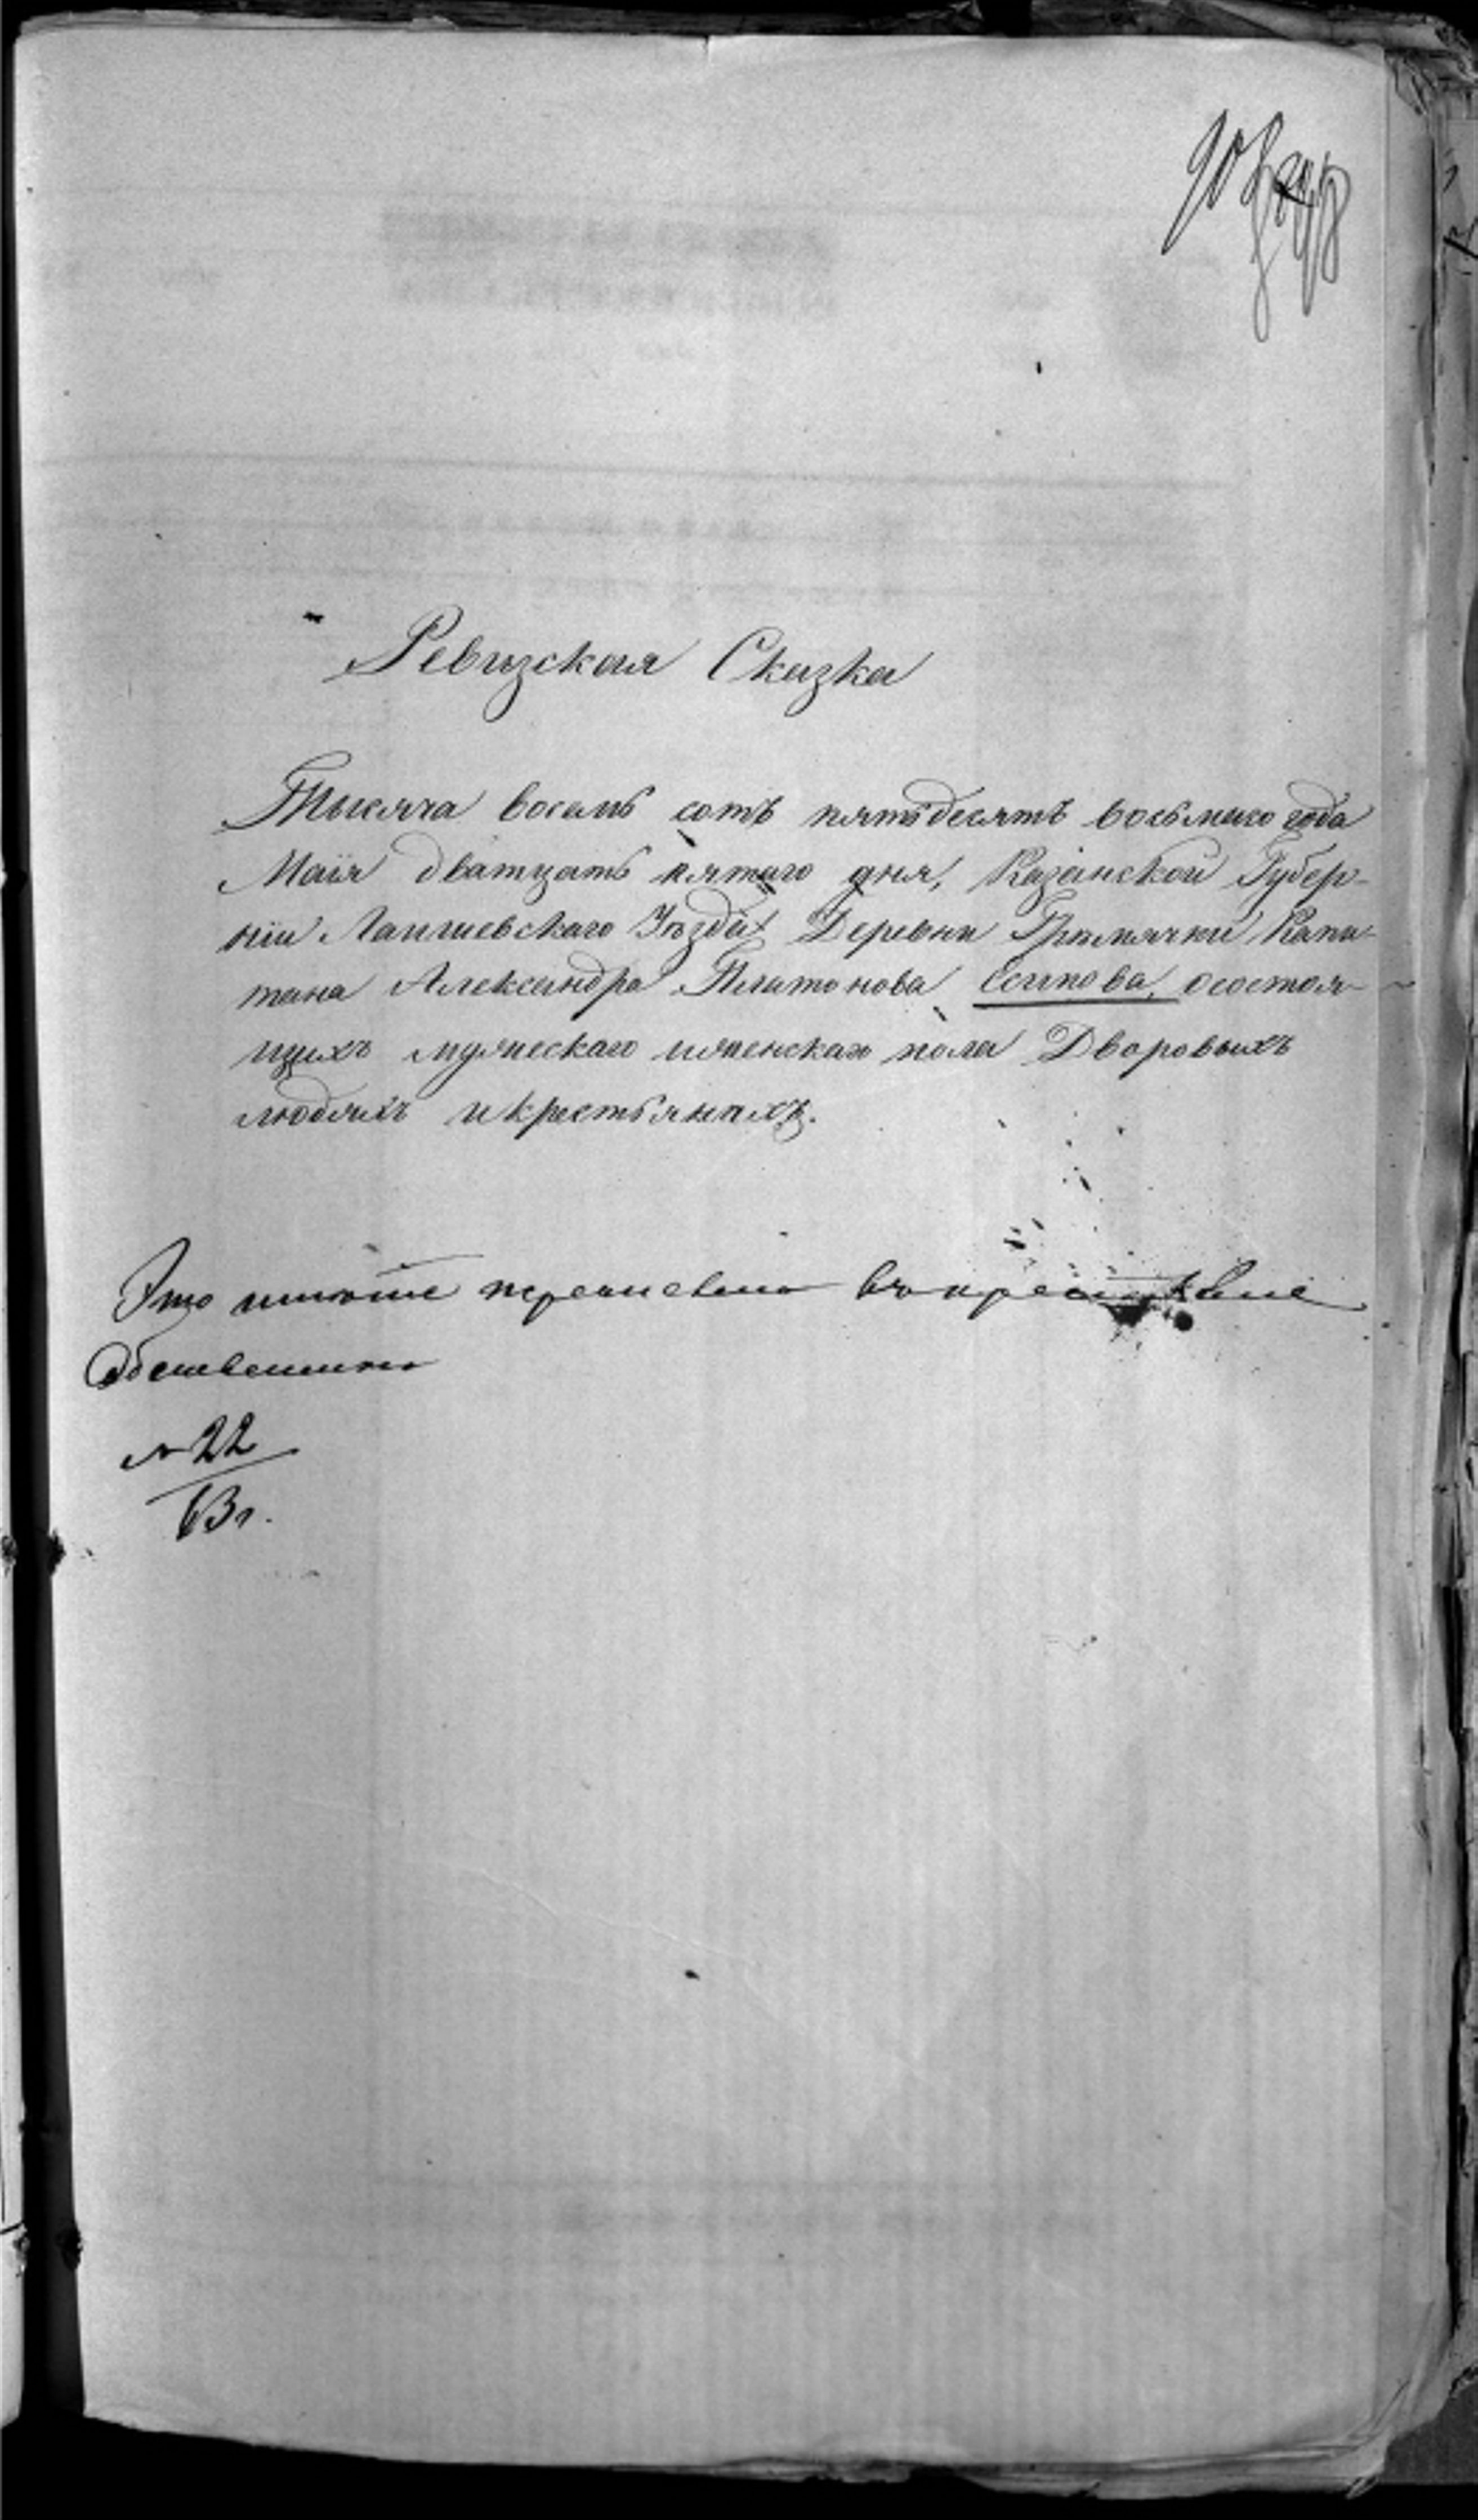 Ревизская Сказка
Тысяча восемь сотъ пятьдесятъ восьмаго года
Маія дватцать пятаго дня, Казанской Губер-
ніи Лаишевскаго Уѣзда Деревни Гремячки Капи-
тана Александра Платонова Есипова, осостоя-
щихъ мужескаго иженскаго пола Дворовыхъ
людяхъ икрестьянахъ.
Это имѣніе перечислено въ
№ 22
63 г.